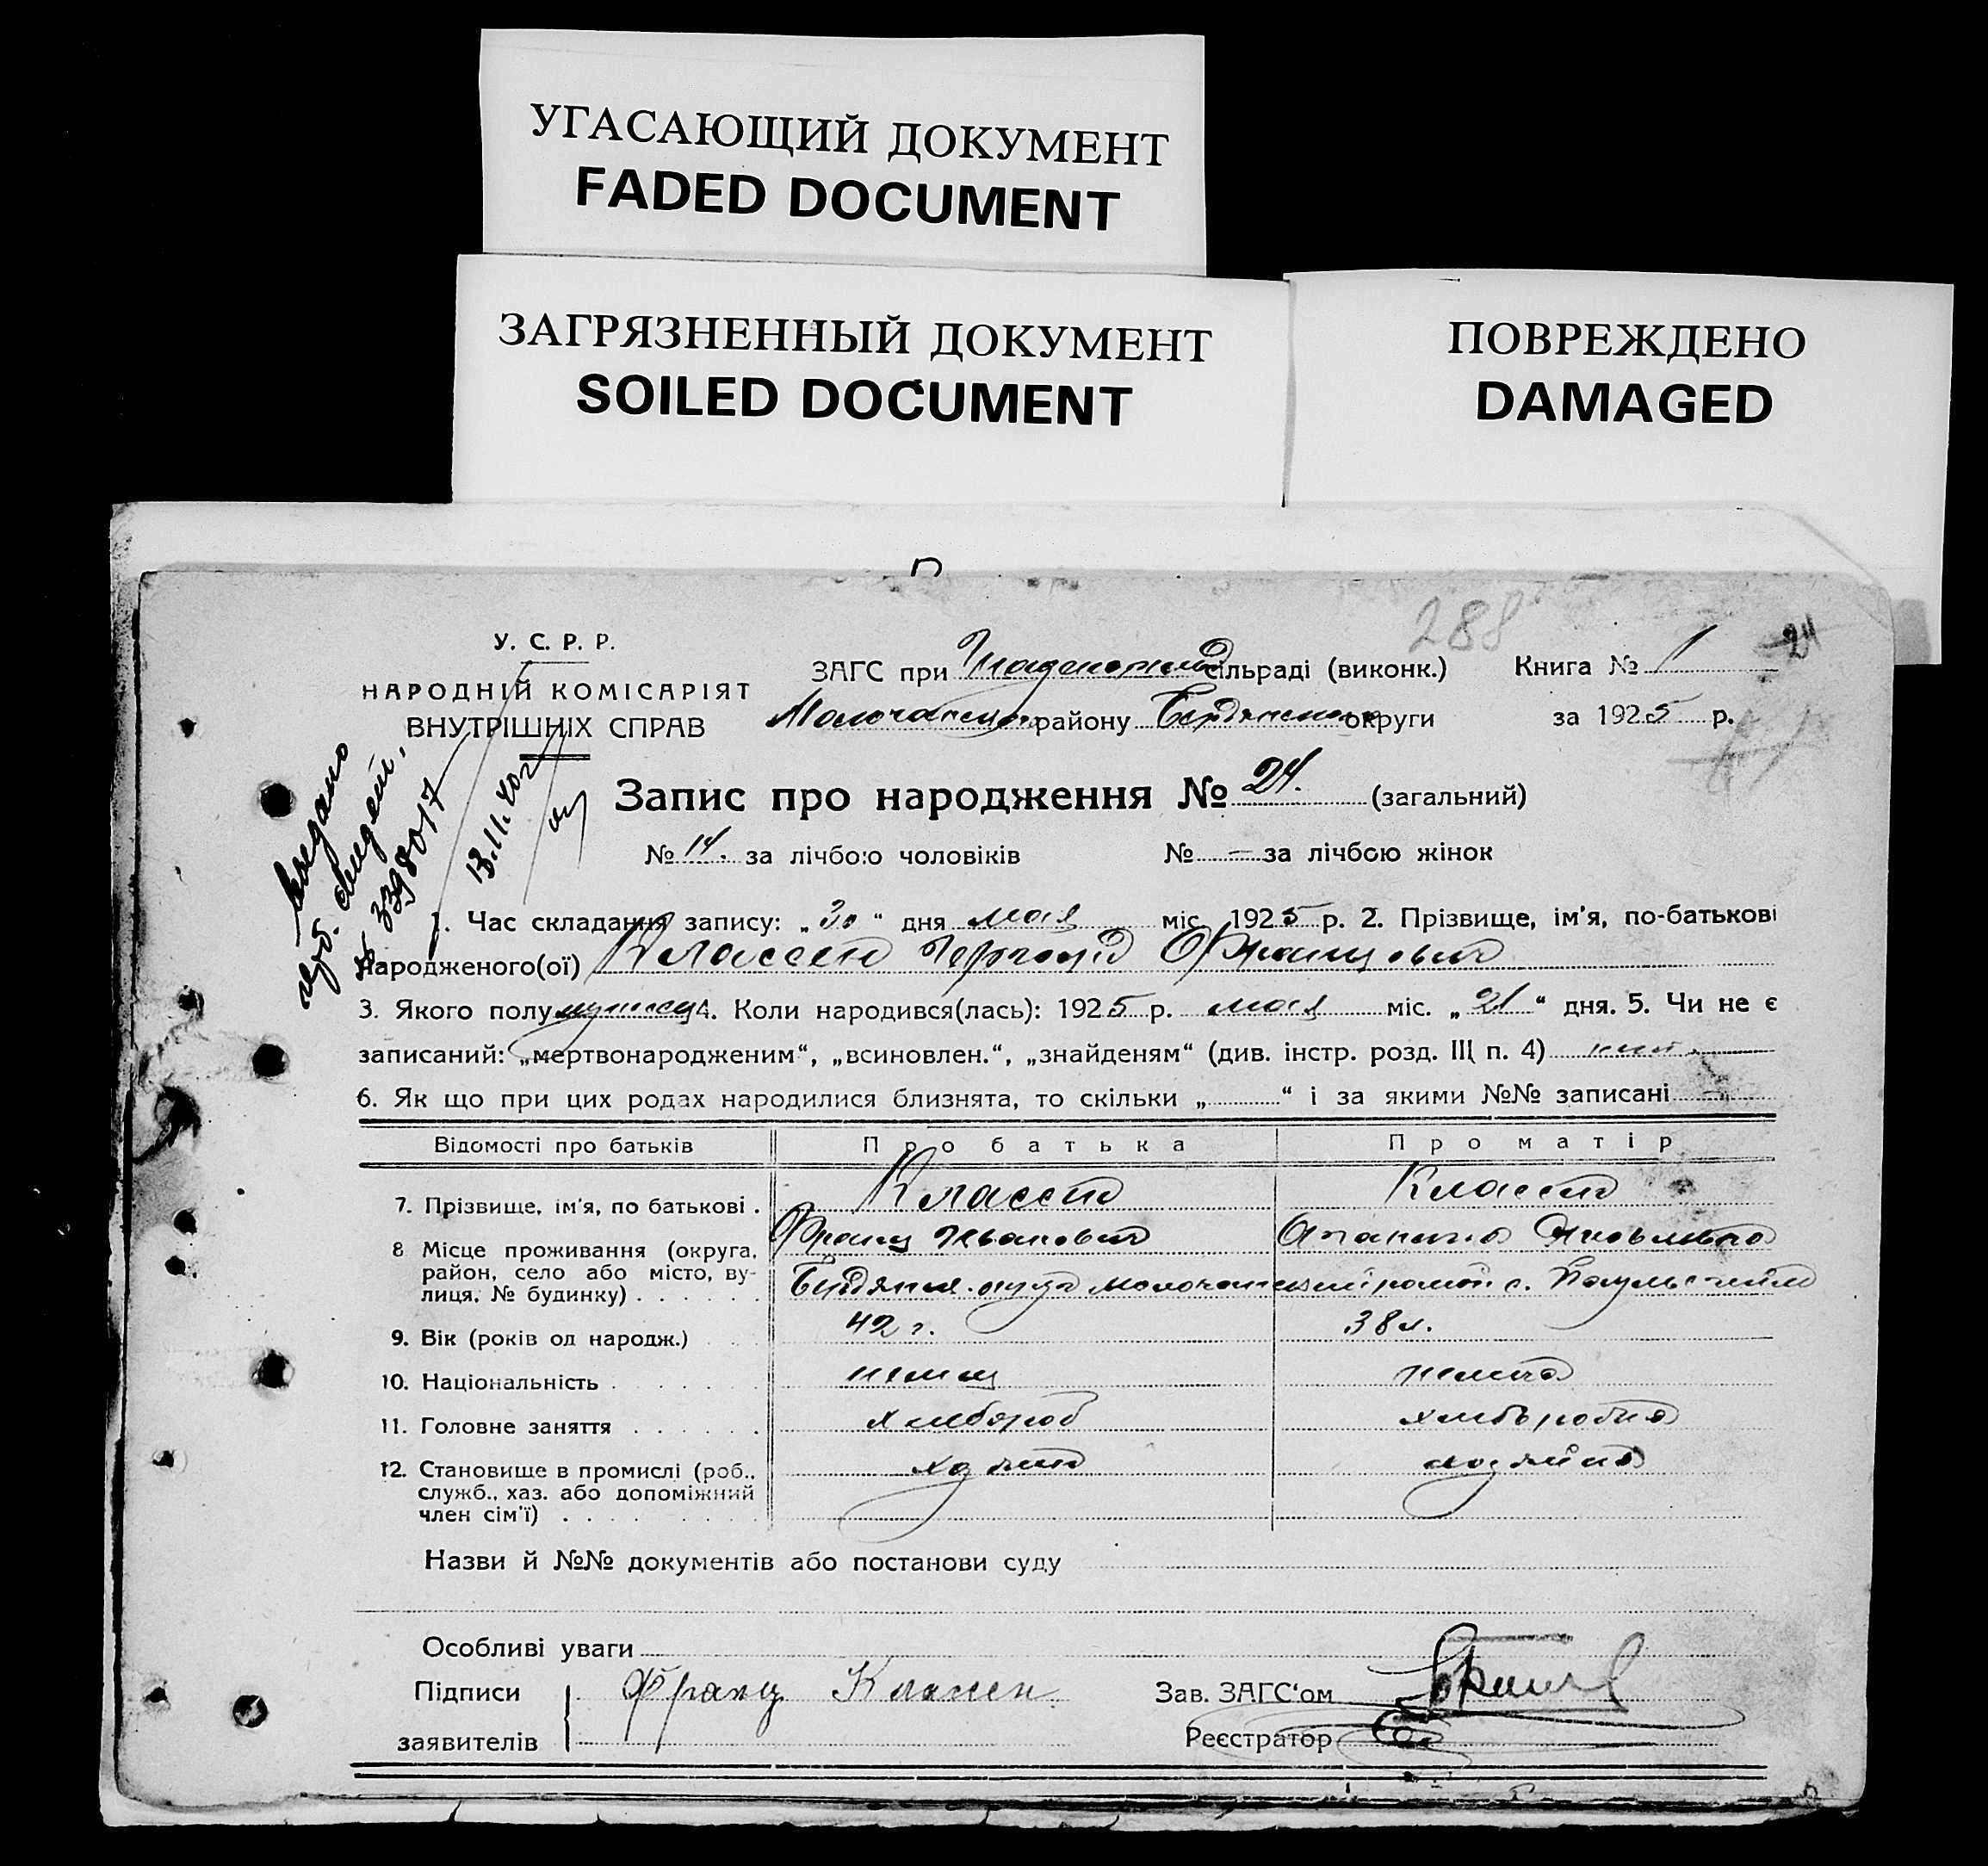 УГАСАЮЩИЙ ДОКУМЕНТ
FADED DOCUMENT
ЗАГРЯЗНЕННЫЙ ДОКУМЕНТ
SOILED DOCUMENT
ПОВРЕЖДЕНО
DAMAGED
288
24
У. С. Р. Р.
НАРОДНІЙ КОМІСАРІЯТ
ВНУТРІШНІХ СПРАВ
ЗАГС при сільраді (виконк.) Книга № 1
району округи за 1925 р.
№ 3398017
13.11.40 г
Запис про народження № 24. (загальний)
№ 14. за лічбою чоловіків № — за лічбою жінок
1. Час складання запису: „30“ дня мая міс. 1925 р. 2. Прізвище, ім'я, по-батькові
народженого(ої) Классен Францович
3. Якого полу 4. Коли народився(лась): 1925 р. мая міс. „21“ дня. 5. Чи не є
записаний: „мертвонародженим“, „всиновлен.“, „знайденям“ (див. інстр. розд. III п. 4)
6. Як що при цих родах народилися близнята, то скільки „ “ і за якими №№ записані —
Відомості про батьків Про батька Про матір
7. Прізвище, ім'я, по батькові . Классен Классен
Франц Иванович Яковлевна
8 Місце проживання (округа, район, село або місто, вулиця, № будинку) . . . . . . район с.
9. Вік (років од народж.) 42 г. 38 л.
10. Національність . . . . . . немец немка
11. Головне заняття . . . . . . хлебороб
12. Становище в промислі (роб., служб., хаз. або допоміжний член сім'ї) . . . .
Назви й №№ документів або постанови суду
Особливі уваги
Підписи Франц Классен Зав. ЗАГС'ом
заявителів Реєстратор